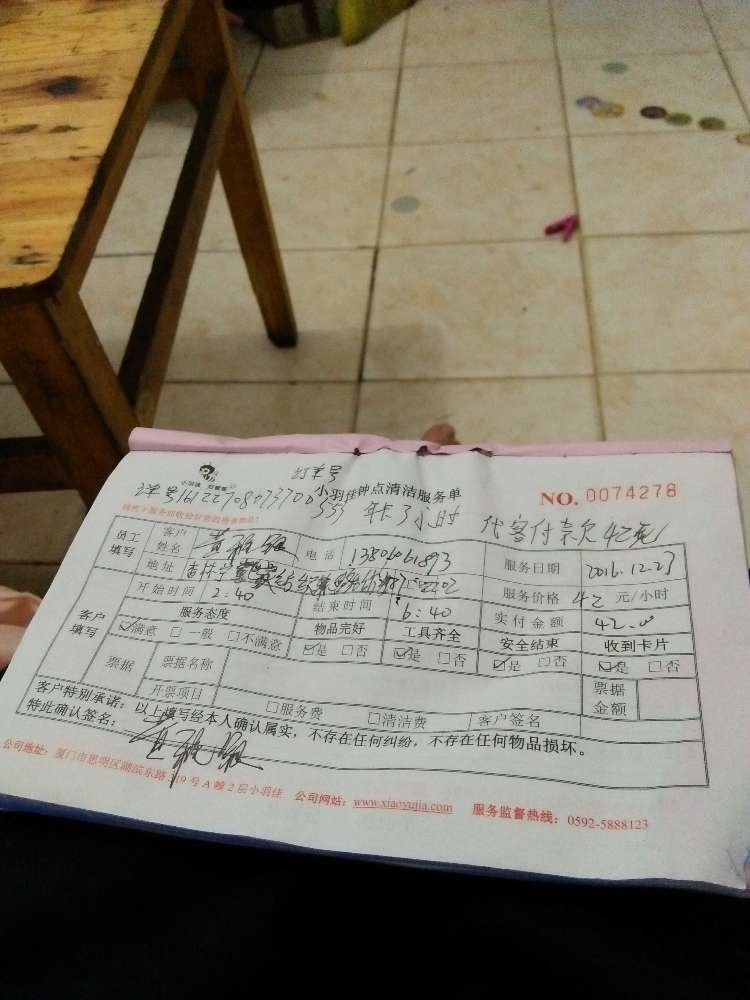 订单号
小羽佳 好管家
小羽佳钟点清洁服务单
NO. 0074278
555 年卡3小时 代客付款欠42元
员工填写 客户姓名 电话 服务日期 2016.12.23
地址 服务价格 42 元/小时
开始时间 2:40 结束时间 6:40 实付金额 42.00
客户填写 服务态度 物品完好 工具齐全 安全结束 收到卡片
☑满意 □一般 □不满意 ☑是 □否 ☑是 □否 ☑是 □否 ☑是 □否
票据 票据名称 票据金额
开票项目 □服务费 □清洁费 客户签名
客户特别承诺：以上填写经本人确认属实，不存在任何纠纷，不存在任何物品损坏。
特此确认签名：
公司地址：厦门市思明区湖滨东路319号A幢2层小羽佳 公司网站：www.xiaoyujia.com 服务监督热线：0592-5888123